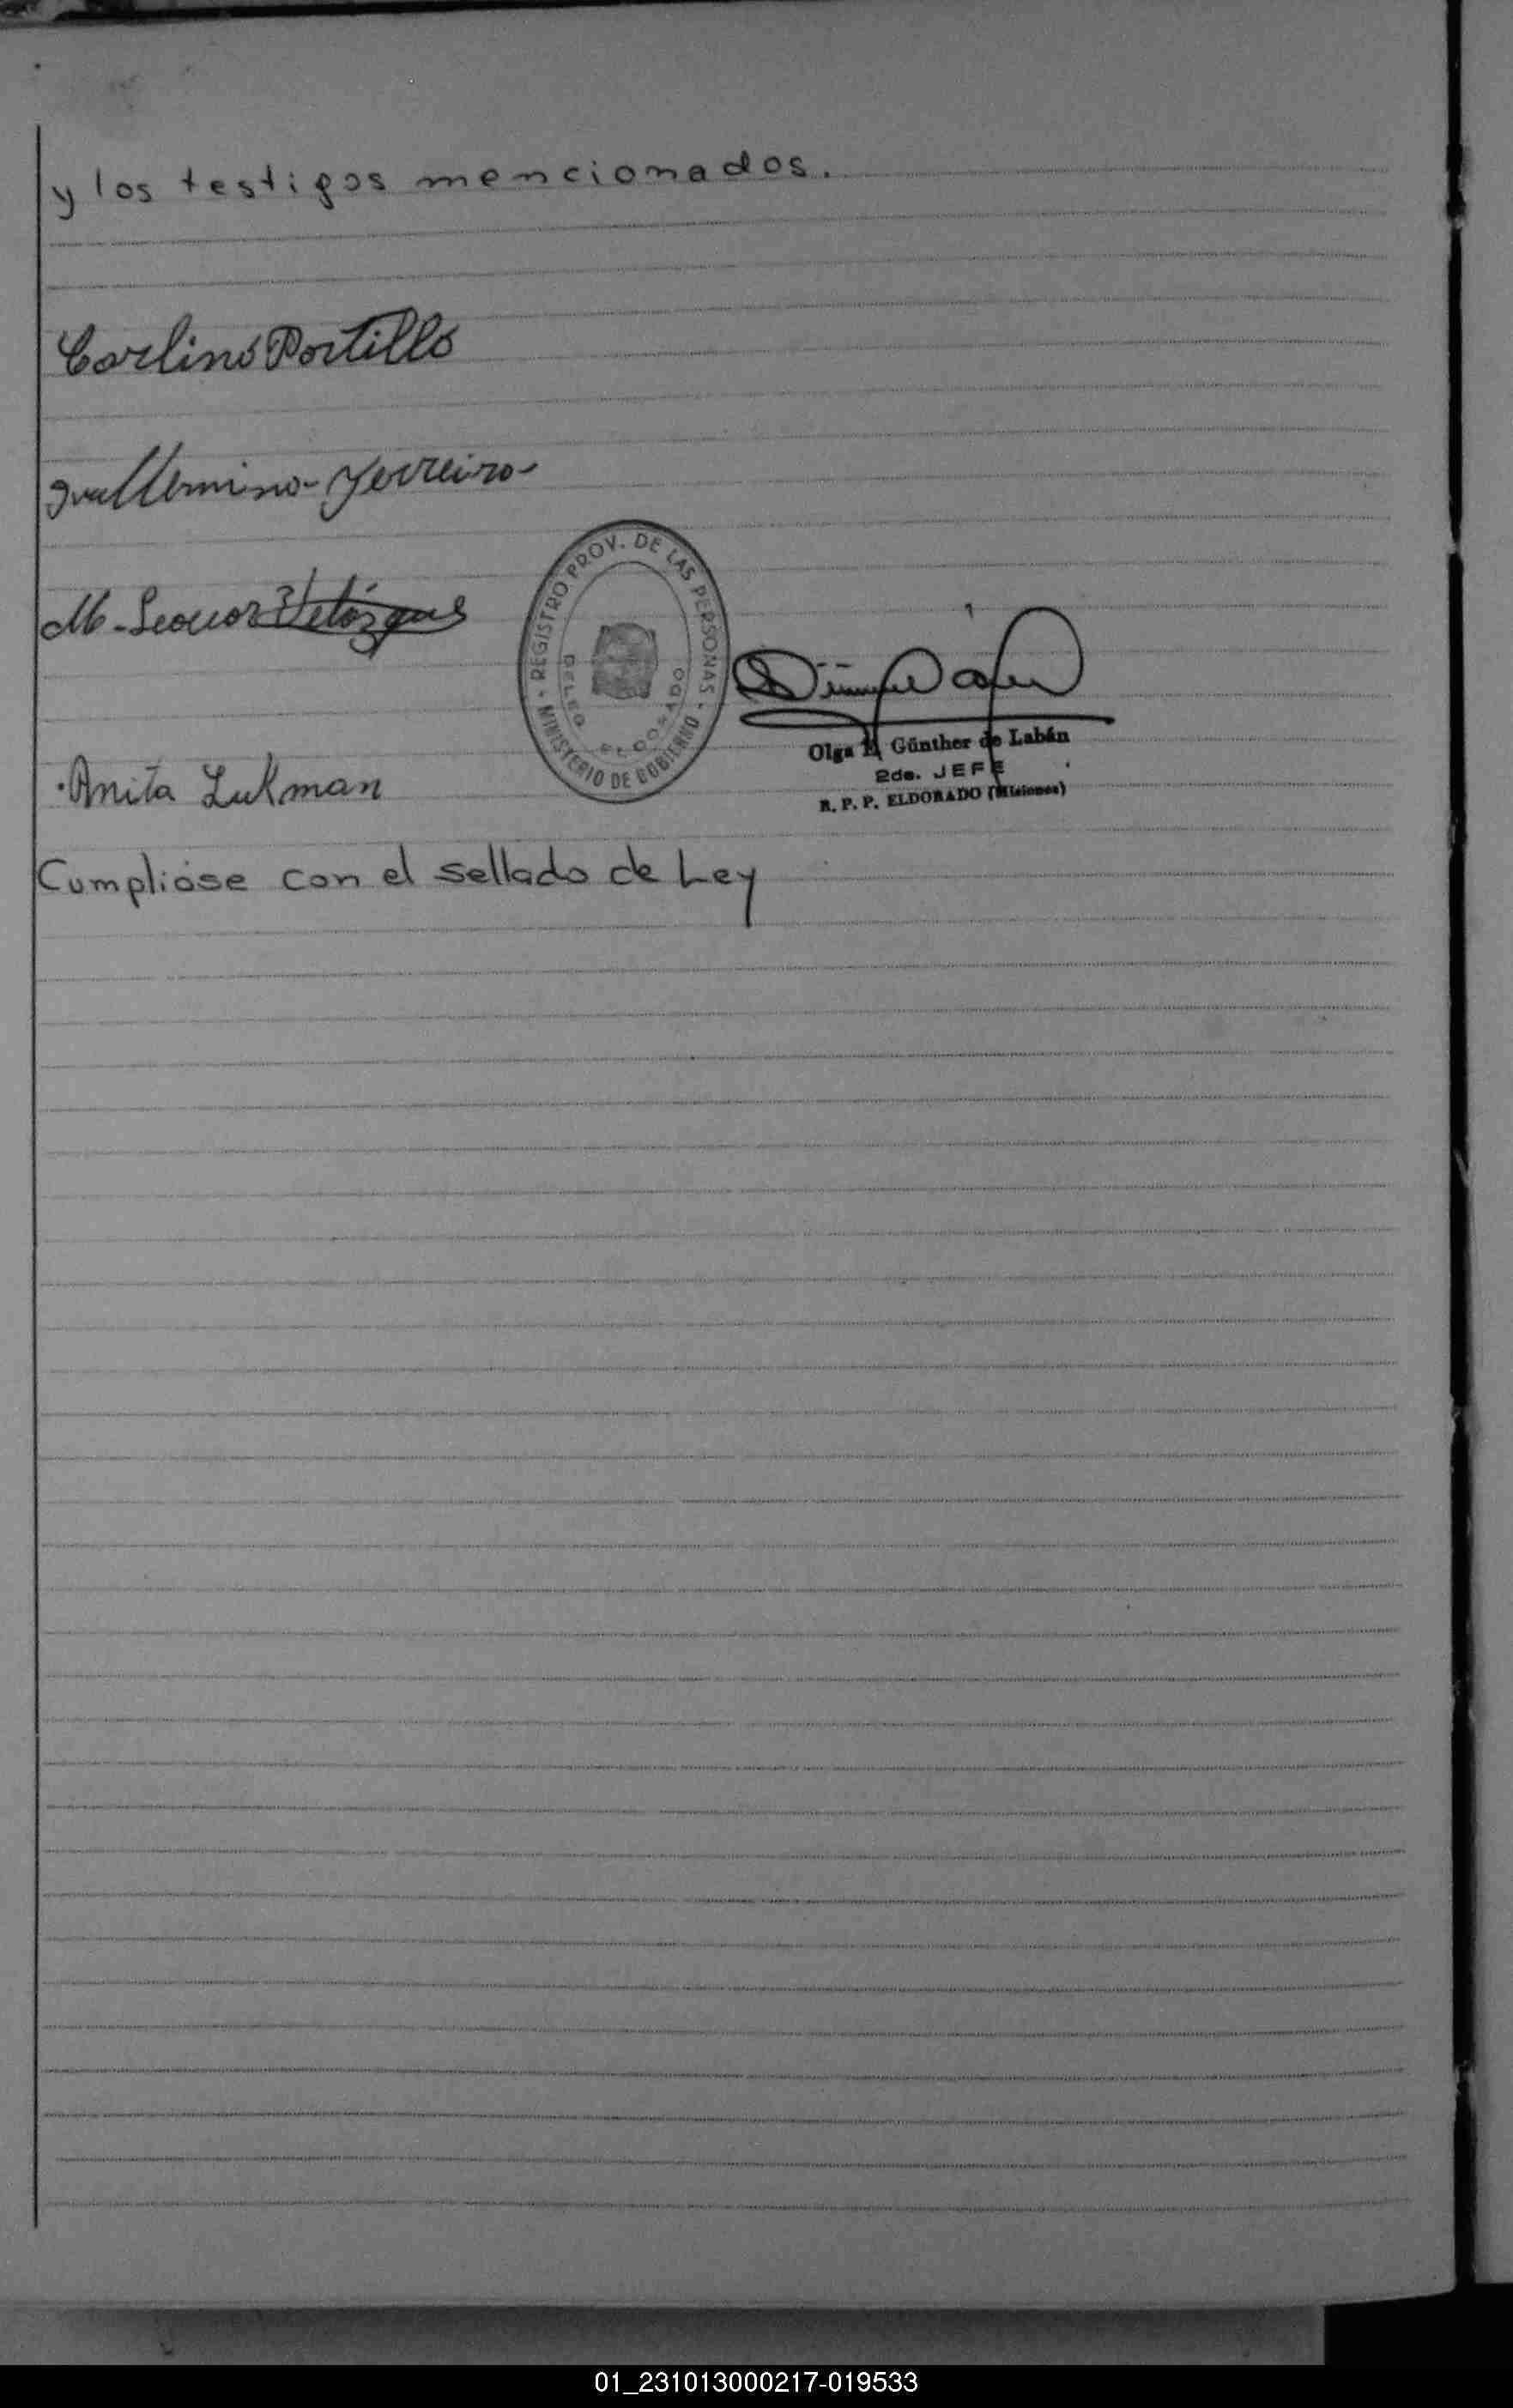 y los testigos mencionados.
Carlino Portillo
Guillermino Ferreiro
M. Leonor Velázquez
REGISTRO PROV. DE LAS PERSONAS - MINISTERIO DE GOBIERNO -
DELEG. ELDORADO
Olga Günther de Labán
2do. JEFE
R. P. P. ELDORADO (Misiones)
Anita Lukman
Cumplióse con el sellado de Ley
01_231013000217-019533